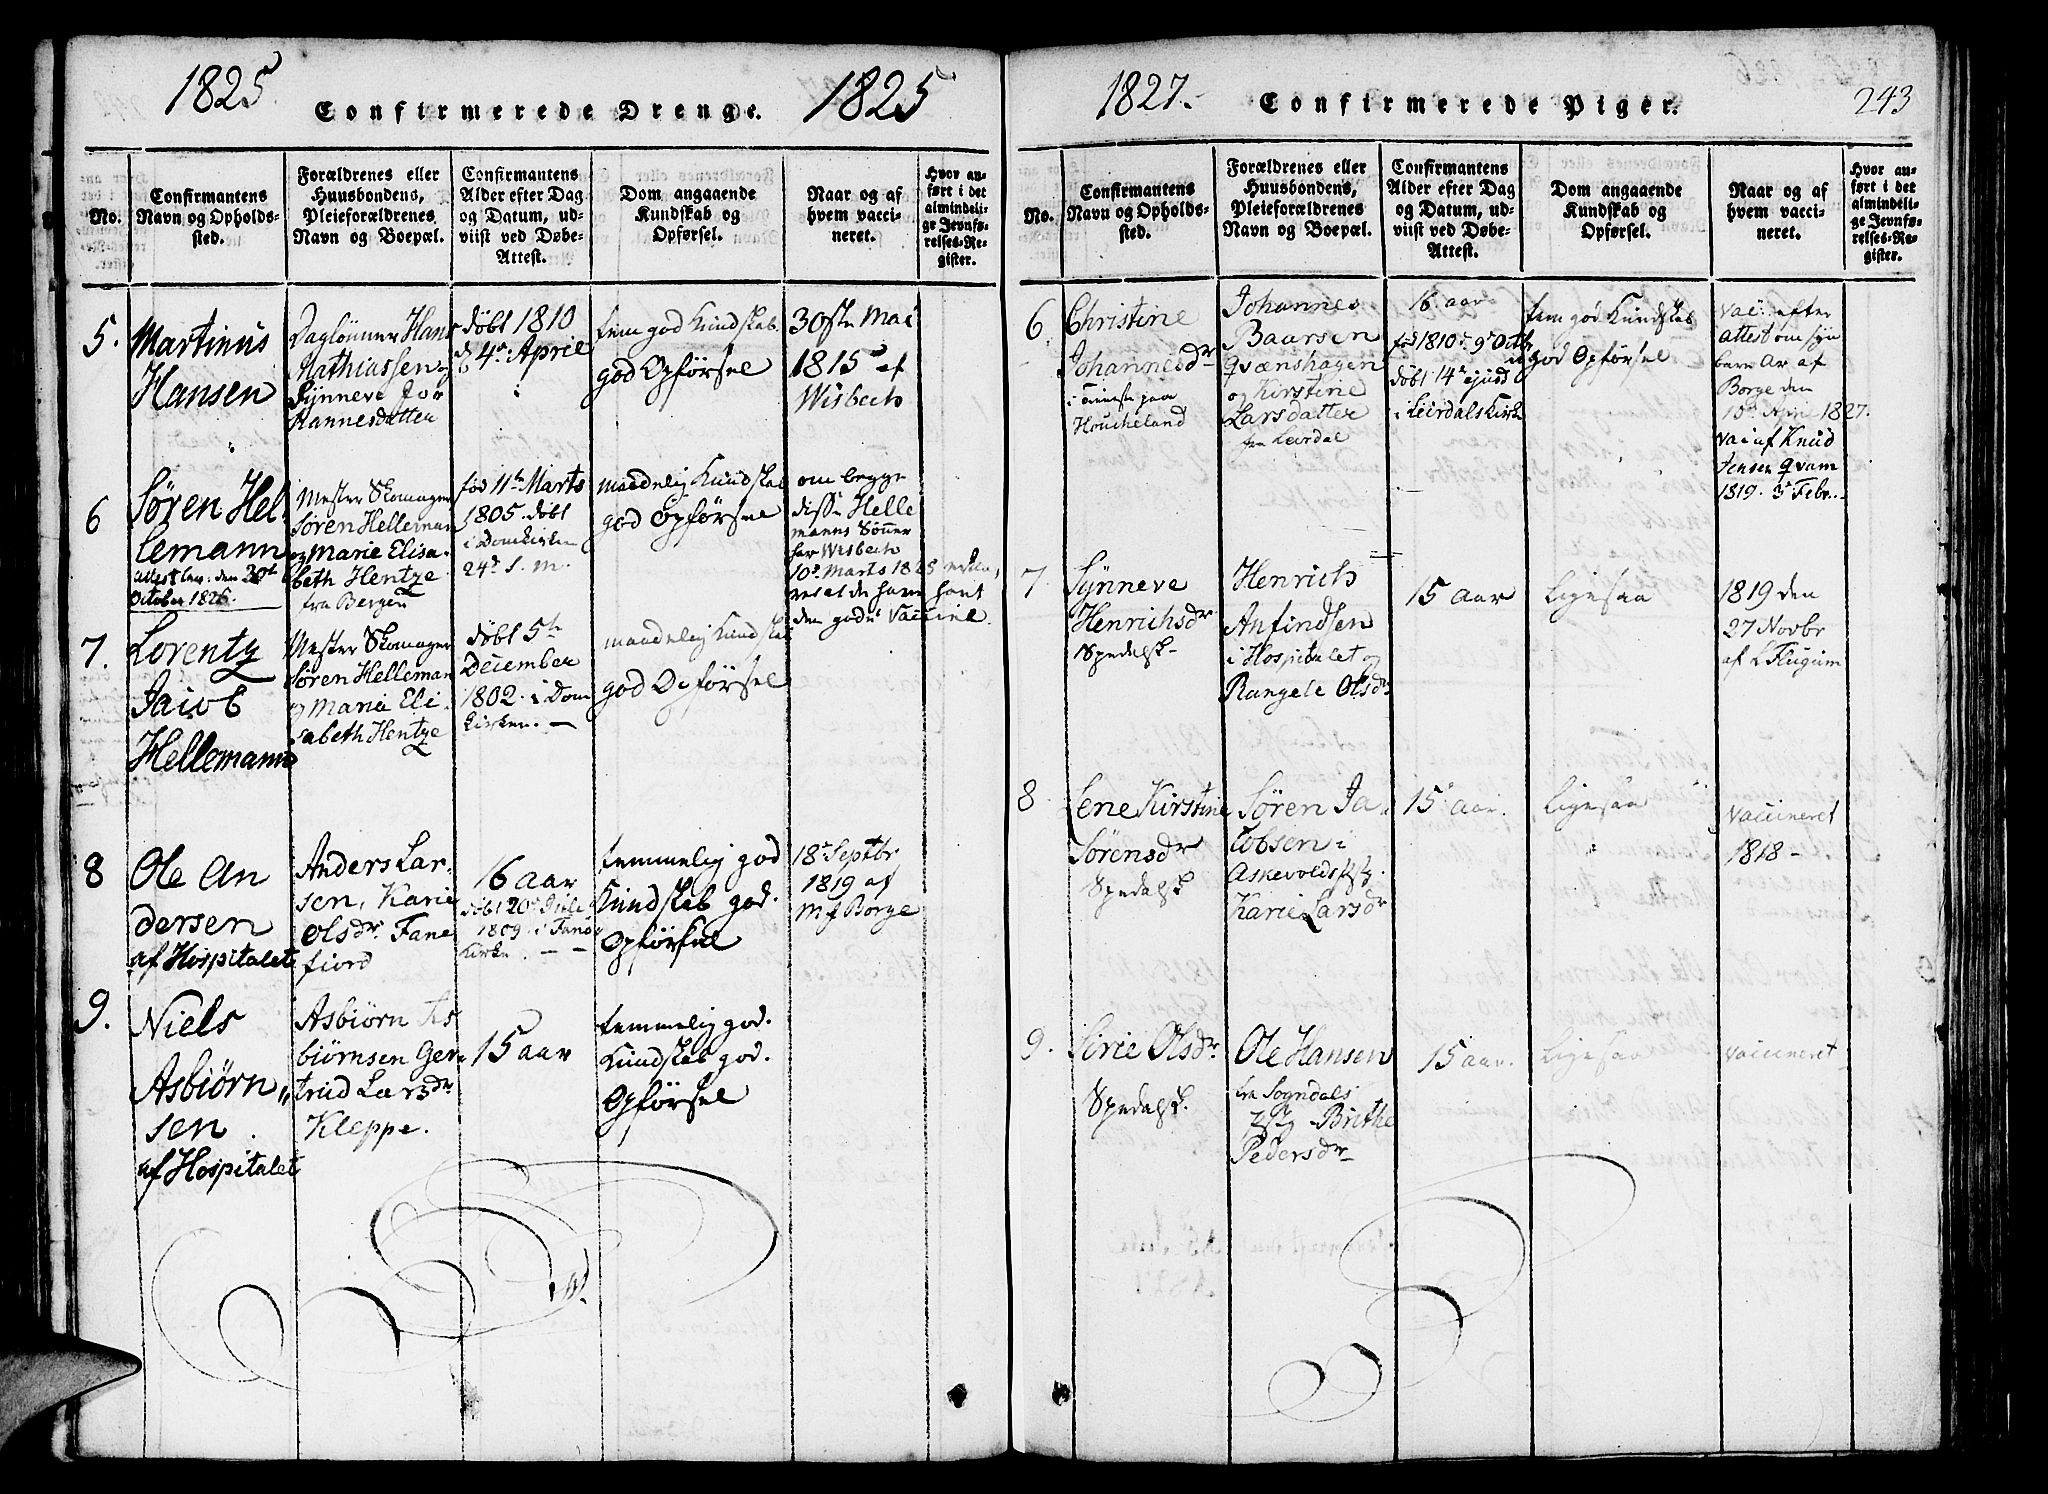 1825.
Confirmerede Drenge.
1825
No.
Confirmantens
Navn og Opholds-
sted.
Forældrenes eller
Huusbondens,
Pleieforældrenes
Navn og Boepæl.
Confirmantens
Alder efter Dag
og Datum, ud-
viist ved Døbe-
Attest.
Dom angaaende
Kundskab og
Opførsel.
Naar og af
hvem vacci-
neret.
Hvor an-
ført i det
almindeli-
ge Jevnfø-
relses-Re-
gister.
5.
Martinus
Hansen
Daglønner Hans
Mathiassen og
Synneve Jo
hannesdatter
døbt 1810
d 4de April
tem god Kundskab
god Opførsel
30ste Mai
1815 af
Wisbech
6
Søren Hel-
lemann
October 1826.
Mester Skomager
Søren Helleman
og Marie Elisa-
beth Hentze
fra Bergen
fød 11te Marts
1805. døbt
i Domkirken
24de s. m.
maadelig Kundskab
god Opførsel
om begge
disse Helle
manns Sønner
har Wisbech
10de Marts 1825
den gode Vaccine.
7.
Lorentz
Jacob
Hellemann
Mester Skomager
Søren Helleman
og Marie Eli
sabeth Hentze
døbt 5te
December
1802. i Dom
kirken. —
maadelig Kundskab
god Opførsel
8
Ole An
dersen
af Hospitalet
Anders Lar-
sen, Karie
Olsdr. Fane
fiord
16 aar
døbt 20de Julie
1809. i Fanø
Kirke. — —
temmelig god
Kundskab god.
Opførsel
18de Septbr
1819 af
M f Borge
9.
Niels
Asbiørn„
sen.
af Hospitalet
Asbiørn As
biørnsen Ger
trud Larsdr
Kleppe.
15 aar
temmelig god.
Kundskab god.
Opførsel
1827.
Confirmerede Piger.
243
No.
Confirmantens
Navn og Opholds-
sted.
Forældrenes eller
Huusbondens,
Pleieforældrenes
Navn og Boepæl.
Confirmantens
Alder efter Dag
og Datum, ud-
viist ved Døbe-
Attest.
Dom angaaende
Kundskab og
Opførsel.
Naar og af
hvem vacci-
neret.
Hvor an-
ført i det
almindeli-
ge Jevnfø-
relses-Re-
gister.
6.
Christine
Johannesdr
i tieneste paa
Houcheland
Johannes
Baarsen
Qvænshagen
og Kirstine
Larsdatter
fra Leirdal
16 aar
fød 1810 9de Octbr
døbt 14de ejusd
i Leirdals Kirke
tem god Kundskab
god Opførsel
vac: efter
attest om syn
bare Ar af
Borge den
10de April 1827.
vac af Knud
Jensen Qvam
1819. 3de Febr.
7
Synneve
Henrichsdr
Spedalsk-
Henrich
Anfindsen
i Hospitalet og
Rangele Olsdr
15 aar
Ligesaa
1819 den
27 Novbr
af L Flugum
8
Lene Kirstine
Sørensdr
Spedalsk
Søren Ja-
cobsen i
Askevolds
Karie Larsdr
15 aar.
Ligesaa
vaccineret
1818-
9.
Sirie Olsdr.
Spedalsk.
Ole Hansen
fra Sogndals
Brithe
Pedersdr
15 aar.
Ligesaa
vaccineret